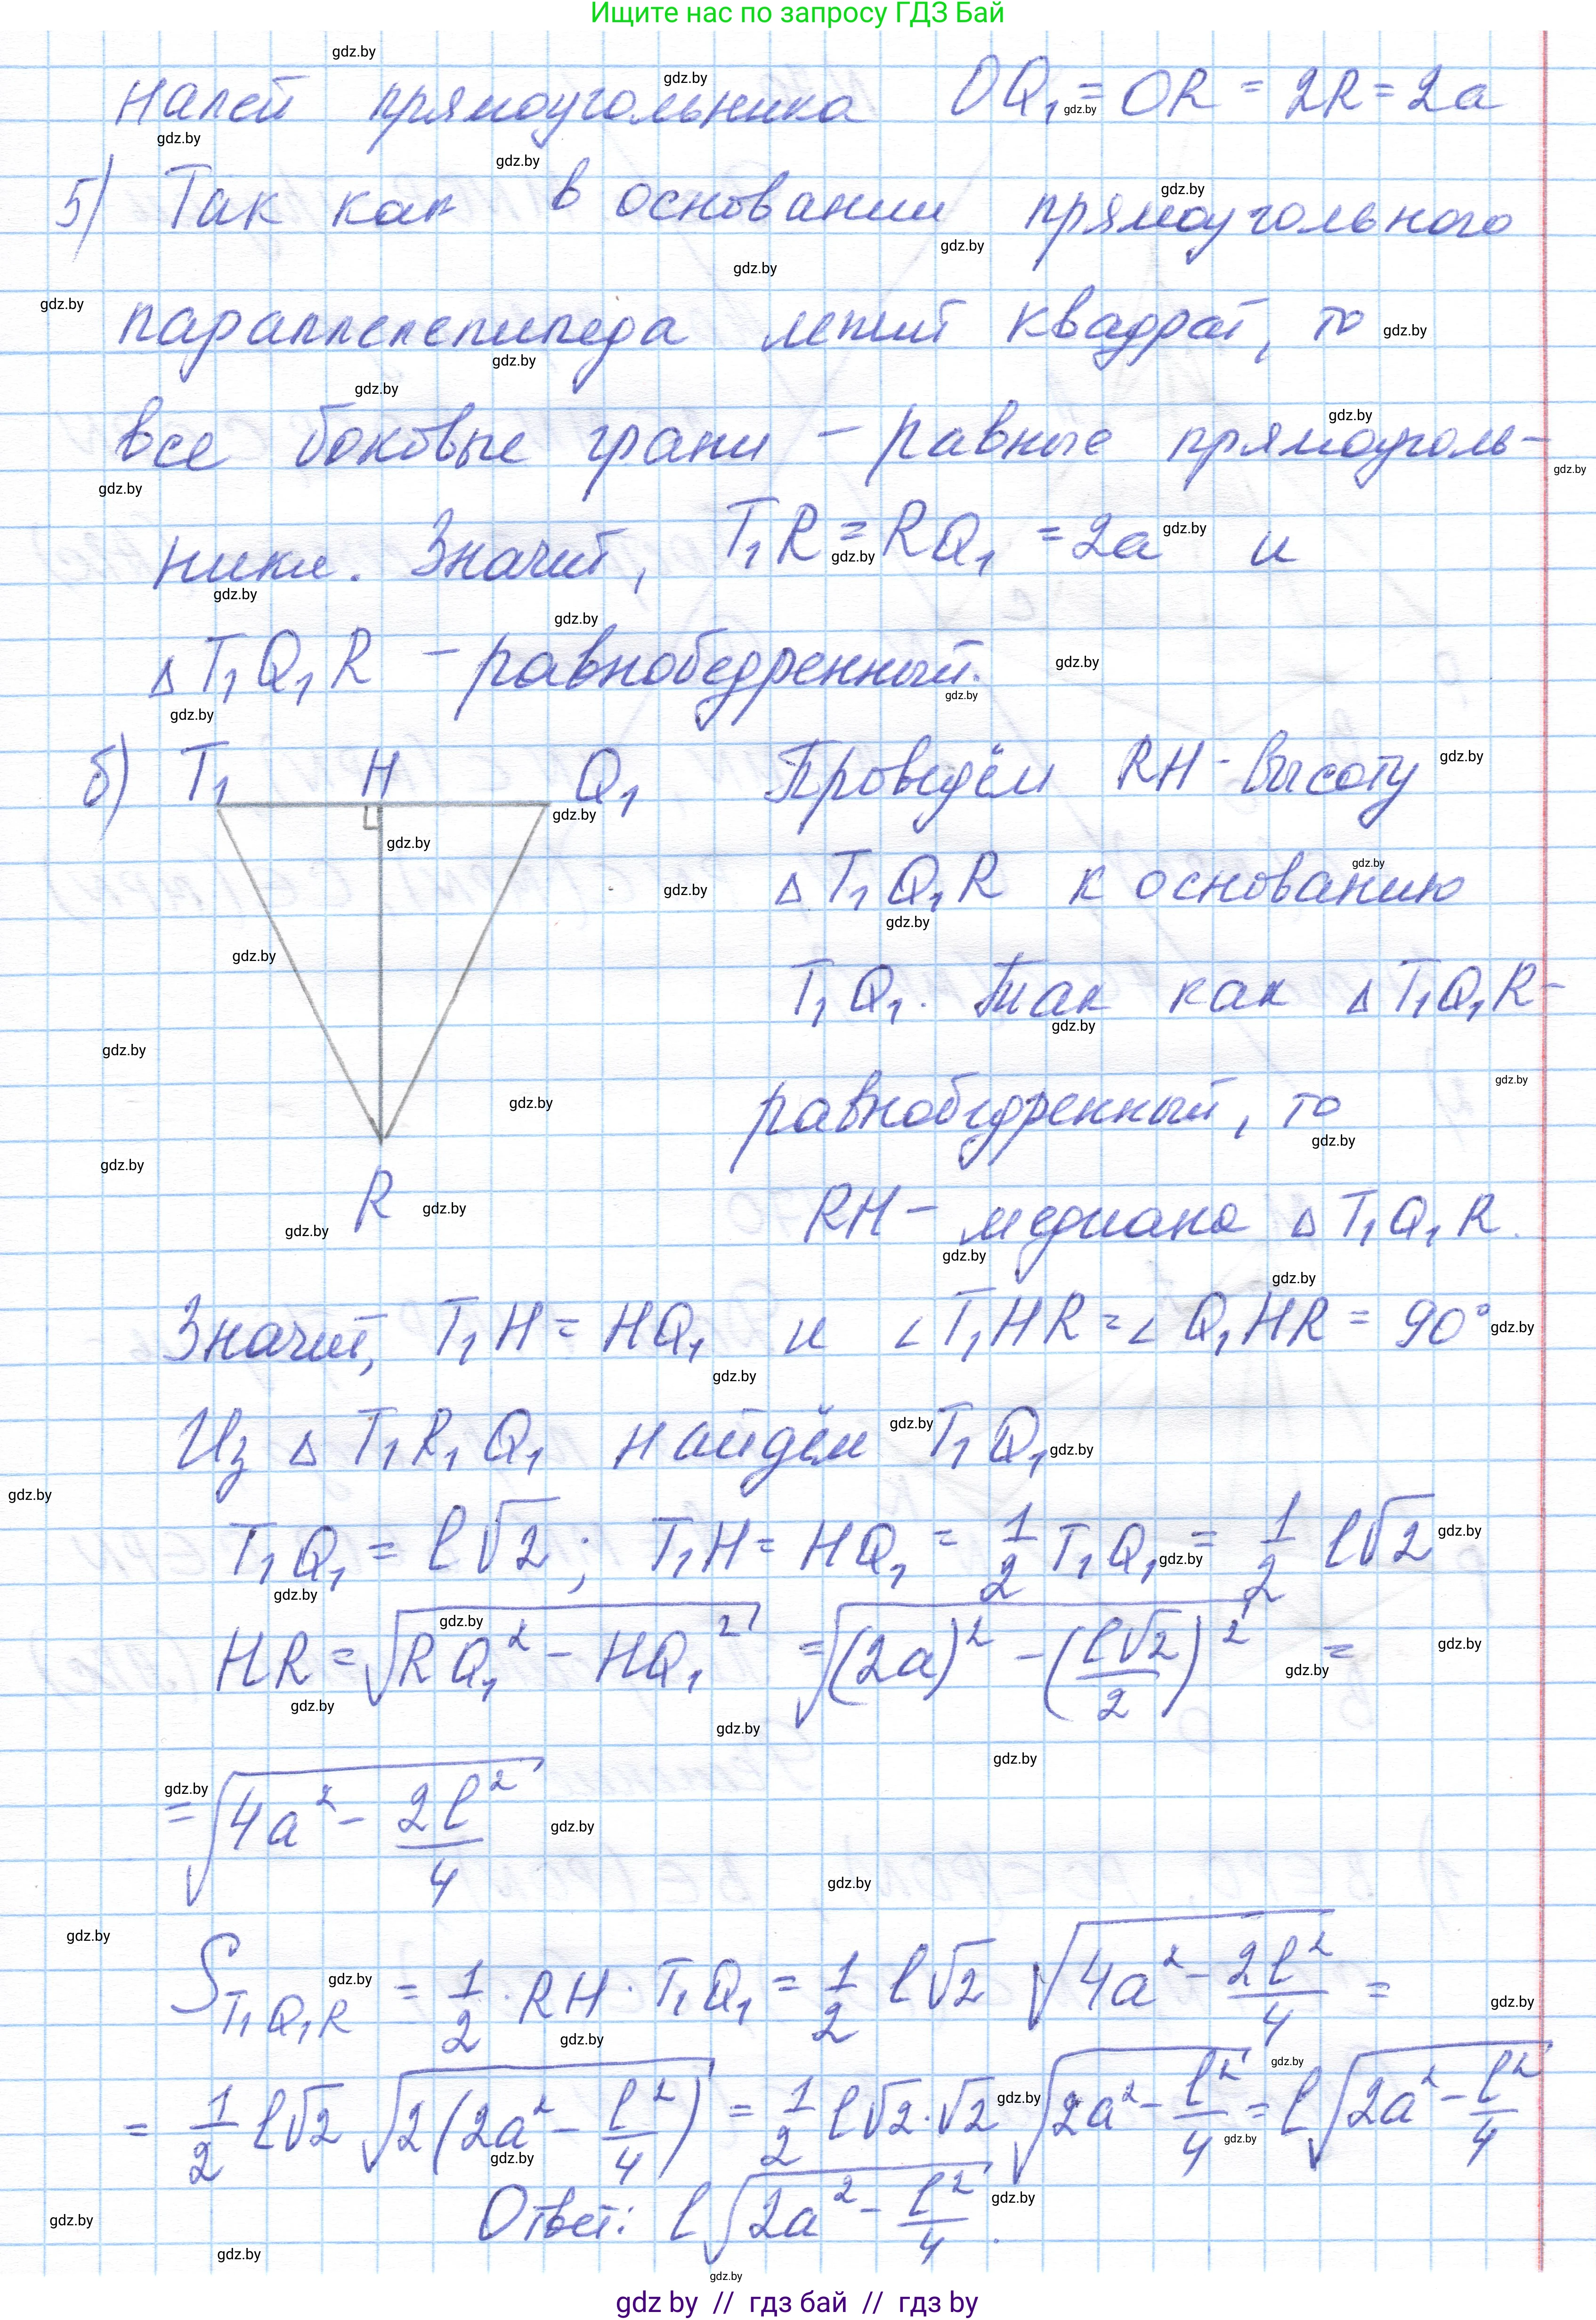 Ищите нас по запросу ГДЗ Бай
налей прямоугольника OQ₁ = OR = 2R = 2a
5) Так как в основании прямоугольного
параллелепипеда лежит квадрат, то
все боковые грани – равные прямоуголь-
ники. Значит, T₁R = RQ₁ = 2a и
△T₁Q₁R – равнобедренный.
б) T₁ H Q₁ Проведём RH - высоту
△T₁Q₁R к основанию
T₁Q₁. Так как △T₁Q₁R -
равнобедренный, то
R
RH – медиана △T₁Q₁R.
Значит, T₁H = HQ₁ и ∠T₁HR = ∠Q₁HR = 90°
Из △T₁R₁Q₁ найдём T₁Q₁
T₁Q₁ = l√2; T₁H = HQ₁ = 1/2 T₁Q₁ = 1/2 l√2
HR = √(RQ₁² – HQ₁²) = √((2a)² – (l√2/2)²) =
= √(4a² – 2l²/4)
S T₁Q₁R = 1/2 · RH · T₁Q₁ = 1/2 l√2 √(4a² – 2l²/4) =
= 1/2 l√2 √(2(2a² – l²/4)) = 1/2 l√2·√2 √(2a² – l²/4) = l√(2a² – l²/4)
Ответ: l√(2a² – l²/4).
gdz by // гдз бай // гдз by